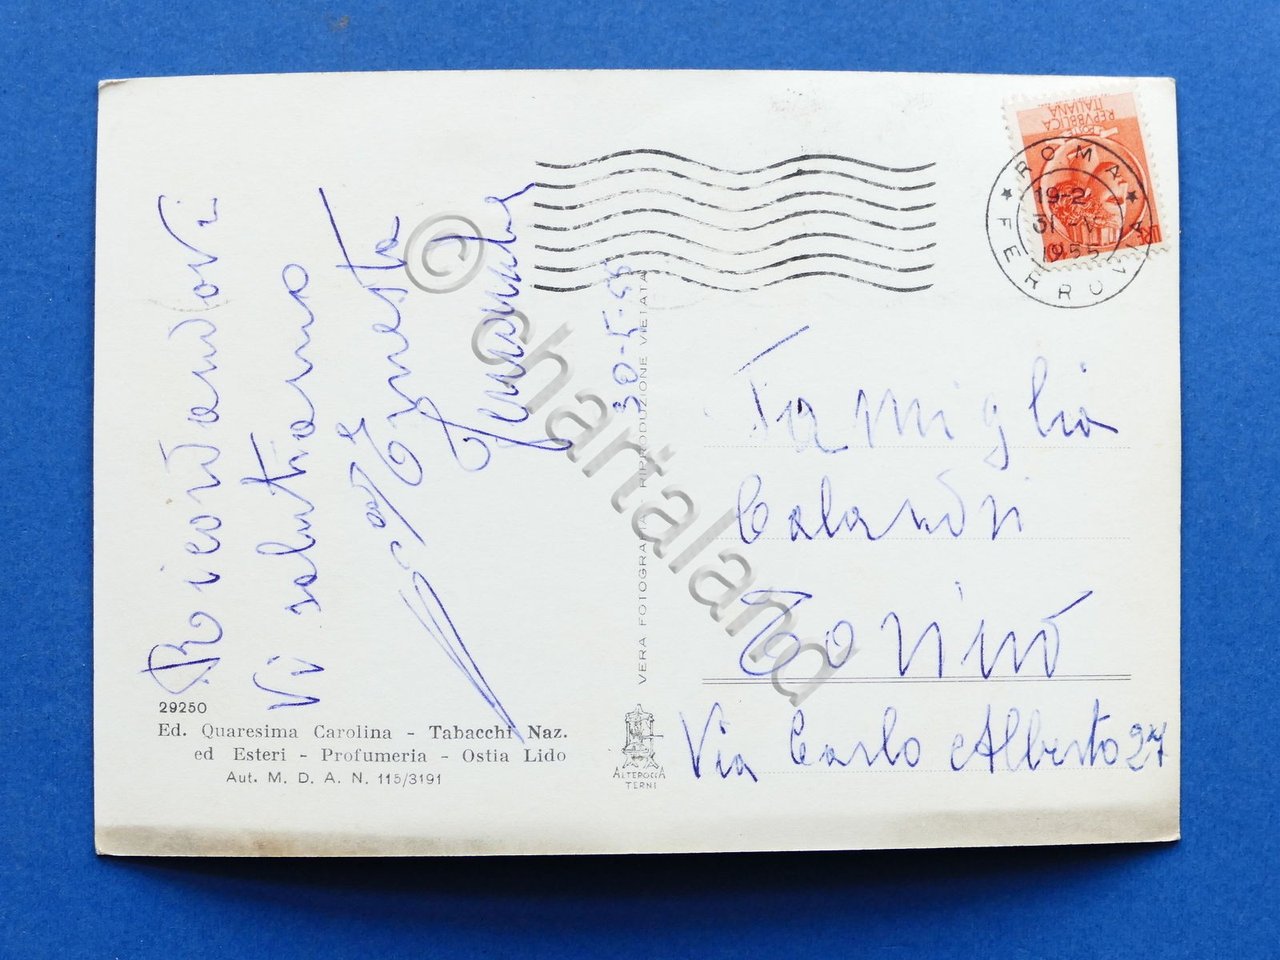 Ricordandovi
Vi salutiamo
Ernesta
30-5-55
29250
Ed. Quaresima Carolina - Tabacchi Naz.
ed Esteri - Profumeria - Ostia Lido
Aut. M. D. A. N. 115/3191
VERA FOTOGRAFIA RIPRODUZIONE VIETATA
ALTEROCCA
TERNI
REPVBBLICA
ITALIANA
ROMA
FERROVIA
19-2
31
1955
Famiglia
Calandri
Torino
Via Carlo Alberto 27
© chartaland